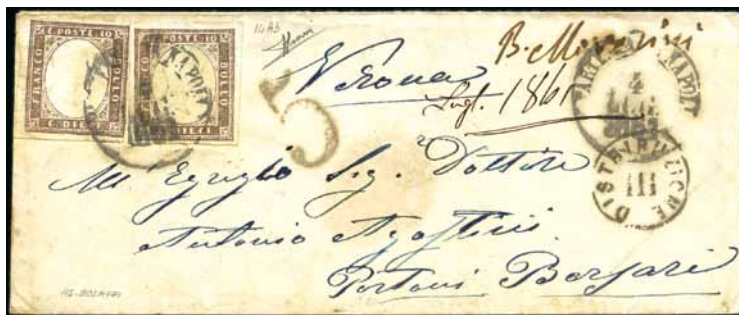 C. POSTE 10
FRANCO BOLLO
C. DIECI
C. POSTE 10
FRANCO BOLLO
C. DIECI
14 AB
NAPOLI
5
Verona
Lugl. 1861
NAPOLI
4
LUG
DISTRIBUZIONE
III
All' Egregio Sig.r Dottore
Antonio Agostini
Portoni Borsari